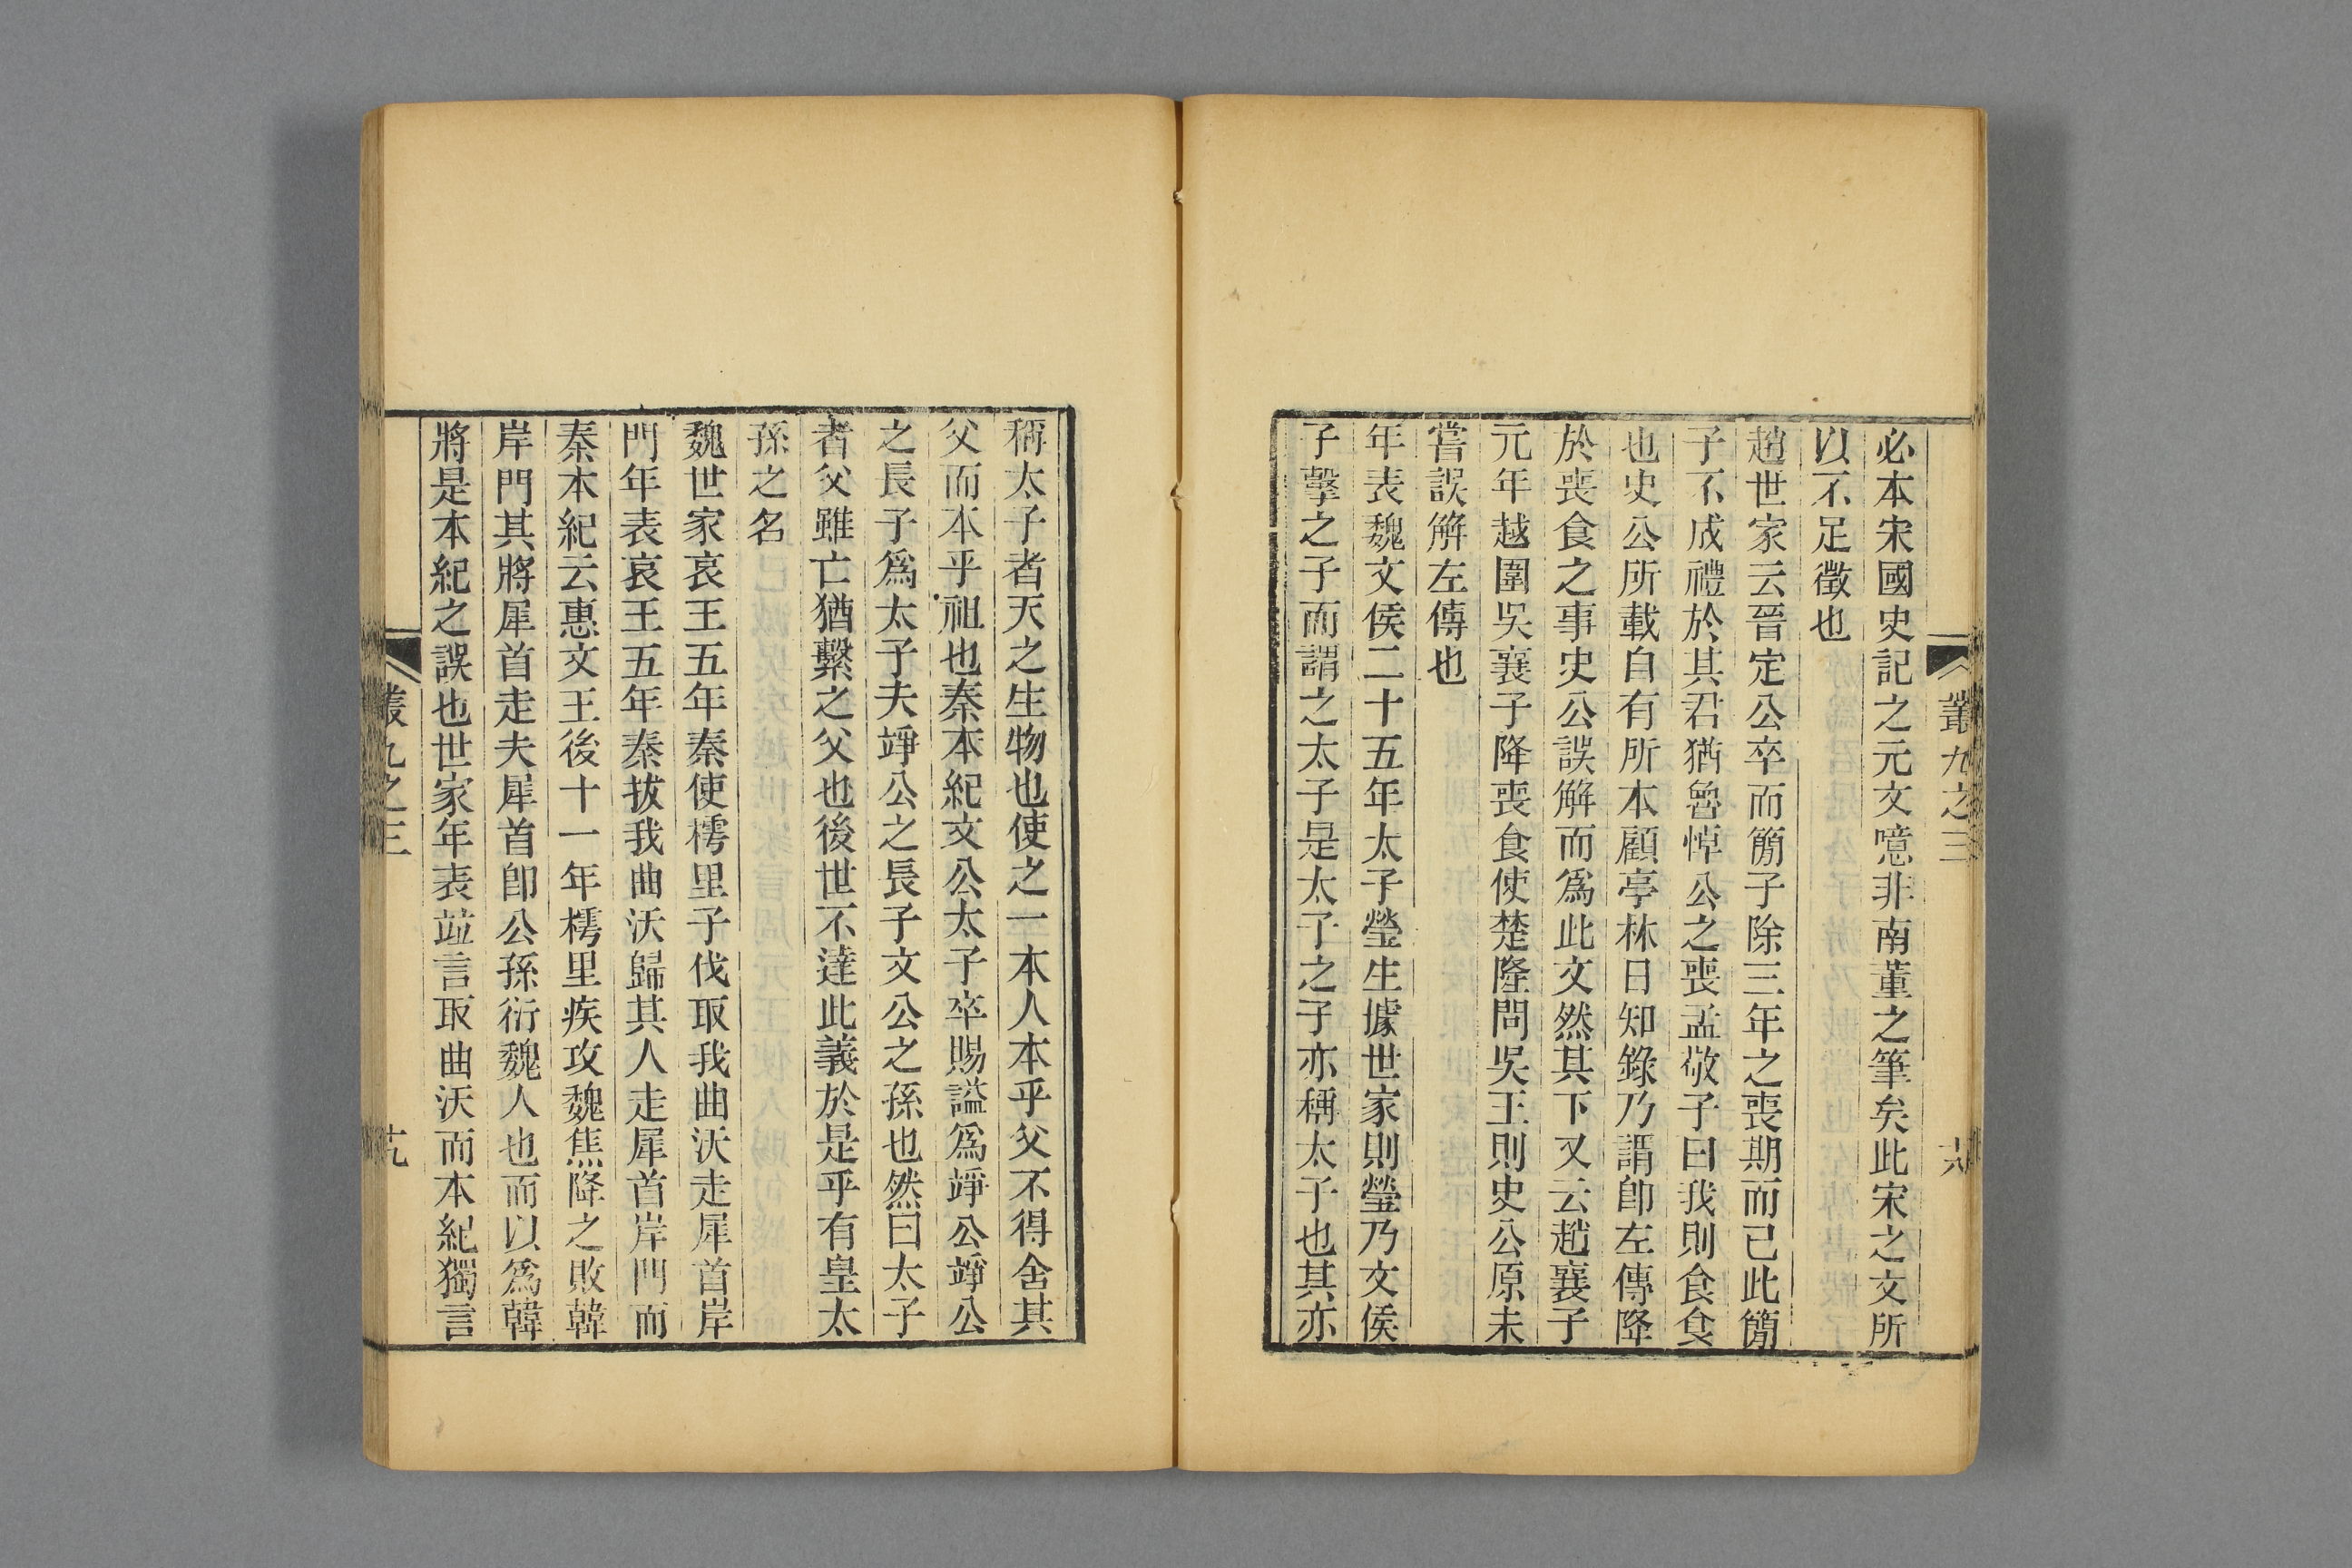 叢九之三
十八
必本宋國史記之元文噫非南董之筆矣此宋之文所
以不足徵也
趙世家云晉定公卒而簡子除三年之喪期而已此簡
子不成禮於其君猶魯悼公之喪孟敬子曰我則食食
也史公所載自有所本顧亭林日知錄乃謂卽左傳降
於喪食之事史公誤解而爲此文然其下又云趙襄子
元年越圍吳襄子降喪食使楚隆問吳王則史公原未
嘗誤解左傳也
年表魏文侯二十五年太子罃生據世家則罃乃文侯
子擊之子而謂之太子是太子之子亦稱太子也其亦
稱太子者天之生物也使之一本人本乎父不得舍其
父而本乎祖也秦本紀文公太子卒賜謚爲竫公竫公
之長子爲太子夫竫公之長子文公之孫也然曰太子
者父雖亡猶繫之父也後世不達此義於是乎有皇太
孫之名
魏世家哀王五年秦使樗里子伐取我曲沃走犀首岸
門年表哀王五年秦拔我曲沃歸其人走犀首岸門而
秦本紀云惠文王後十一年樗里疾攻魏焦降之敗韓
岸門其將犀首走夫犀首卽公孫衍魏人也而以爲韓
將是本紀之誤也世家年表竝言取曲沃而本紀獨言
叢九之三
十九